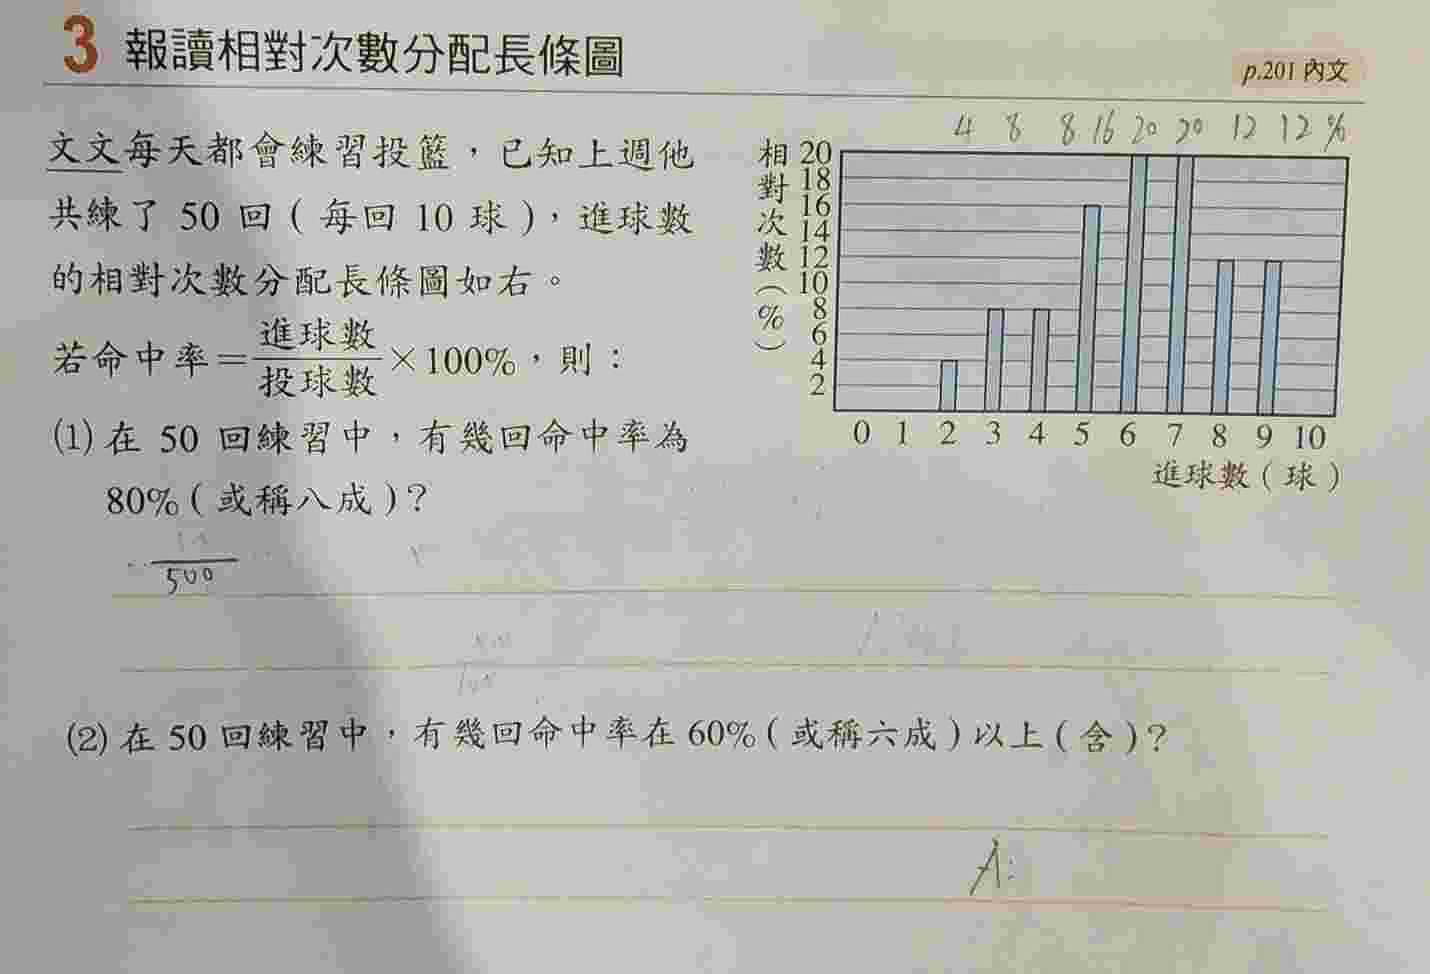 3 報讀相對次數分配長條圖
p.201 內文
文文每天都會練習投籃，已知上週他
共練了 50 回（每回 10 球），進球數
的相對次數分配長條圖如右。
若命中率＝進球數/投球數×100%，則：
(1) 在 50 回練習中，有幾回命中率為
80%（或稱八成）？
500
4 8 8 16 20 20 12 12 %
相對次數（%）
20
18
16
14
12
10
8
6
4
2
0 1 2 3 4 5 6 7 8 9 10
進球數（球）
(2) 在 50 回練習中，有幾回命中率在 60%（或稱六成）以上（含）？
A: